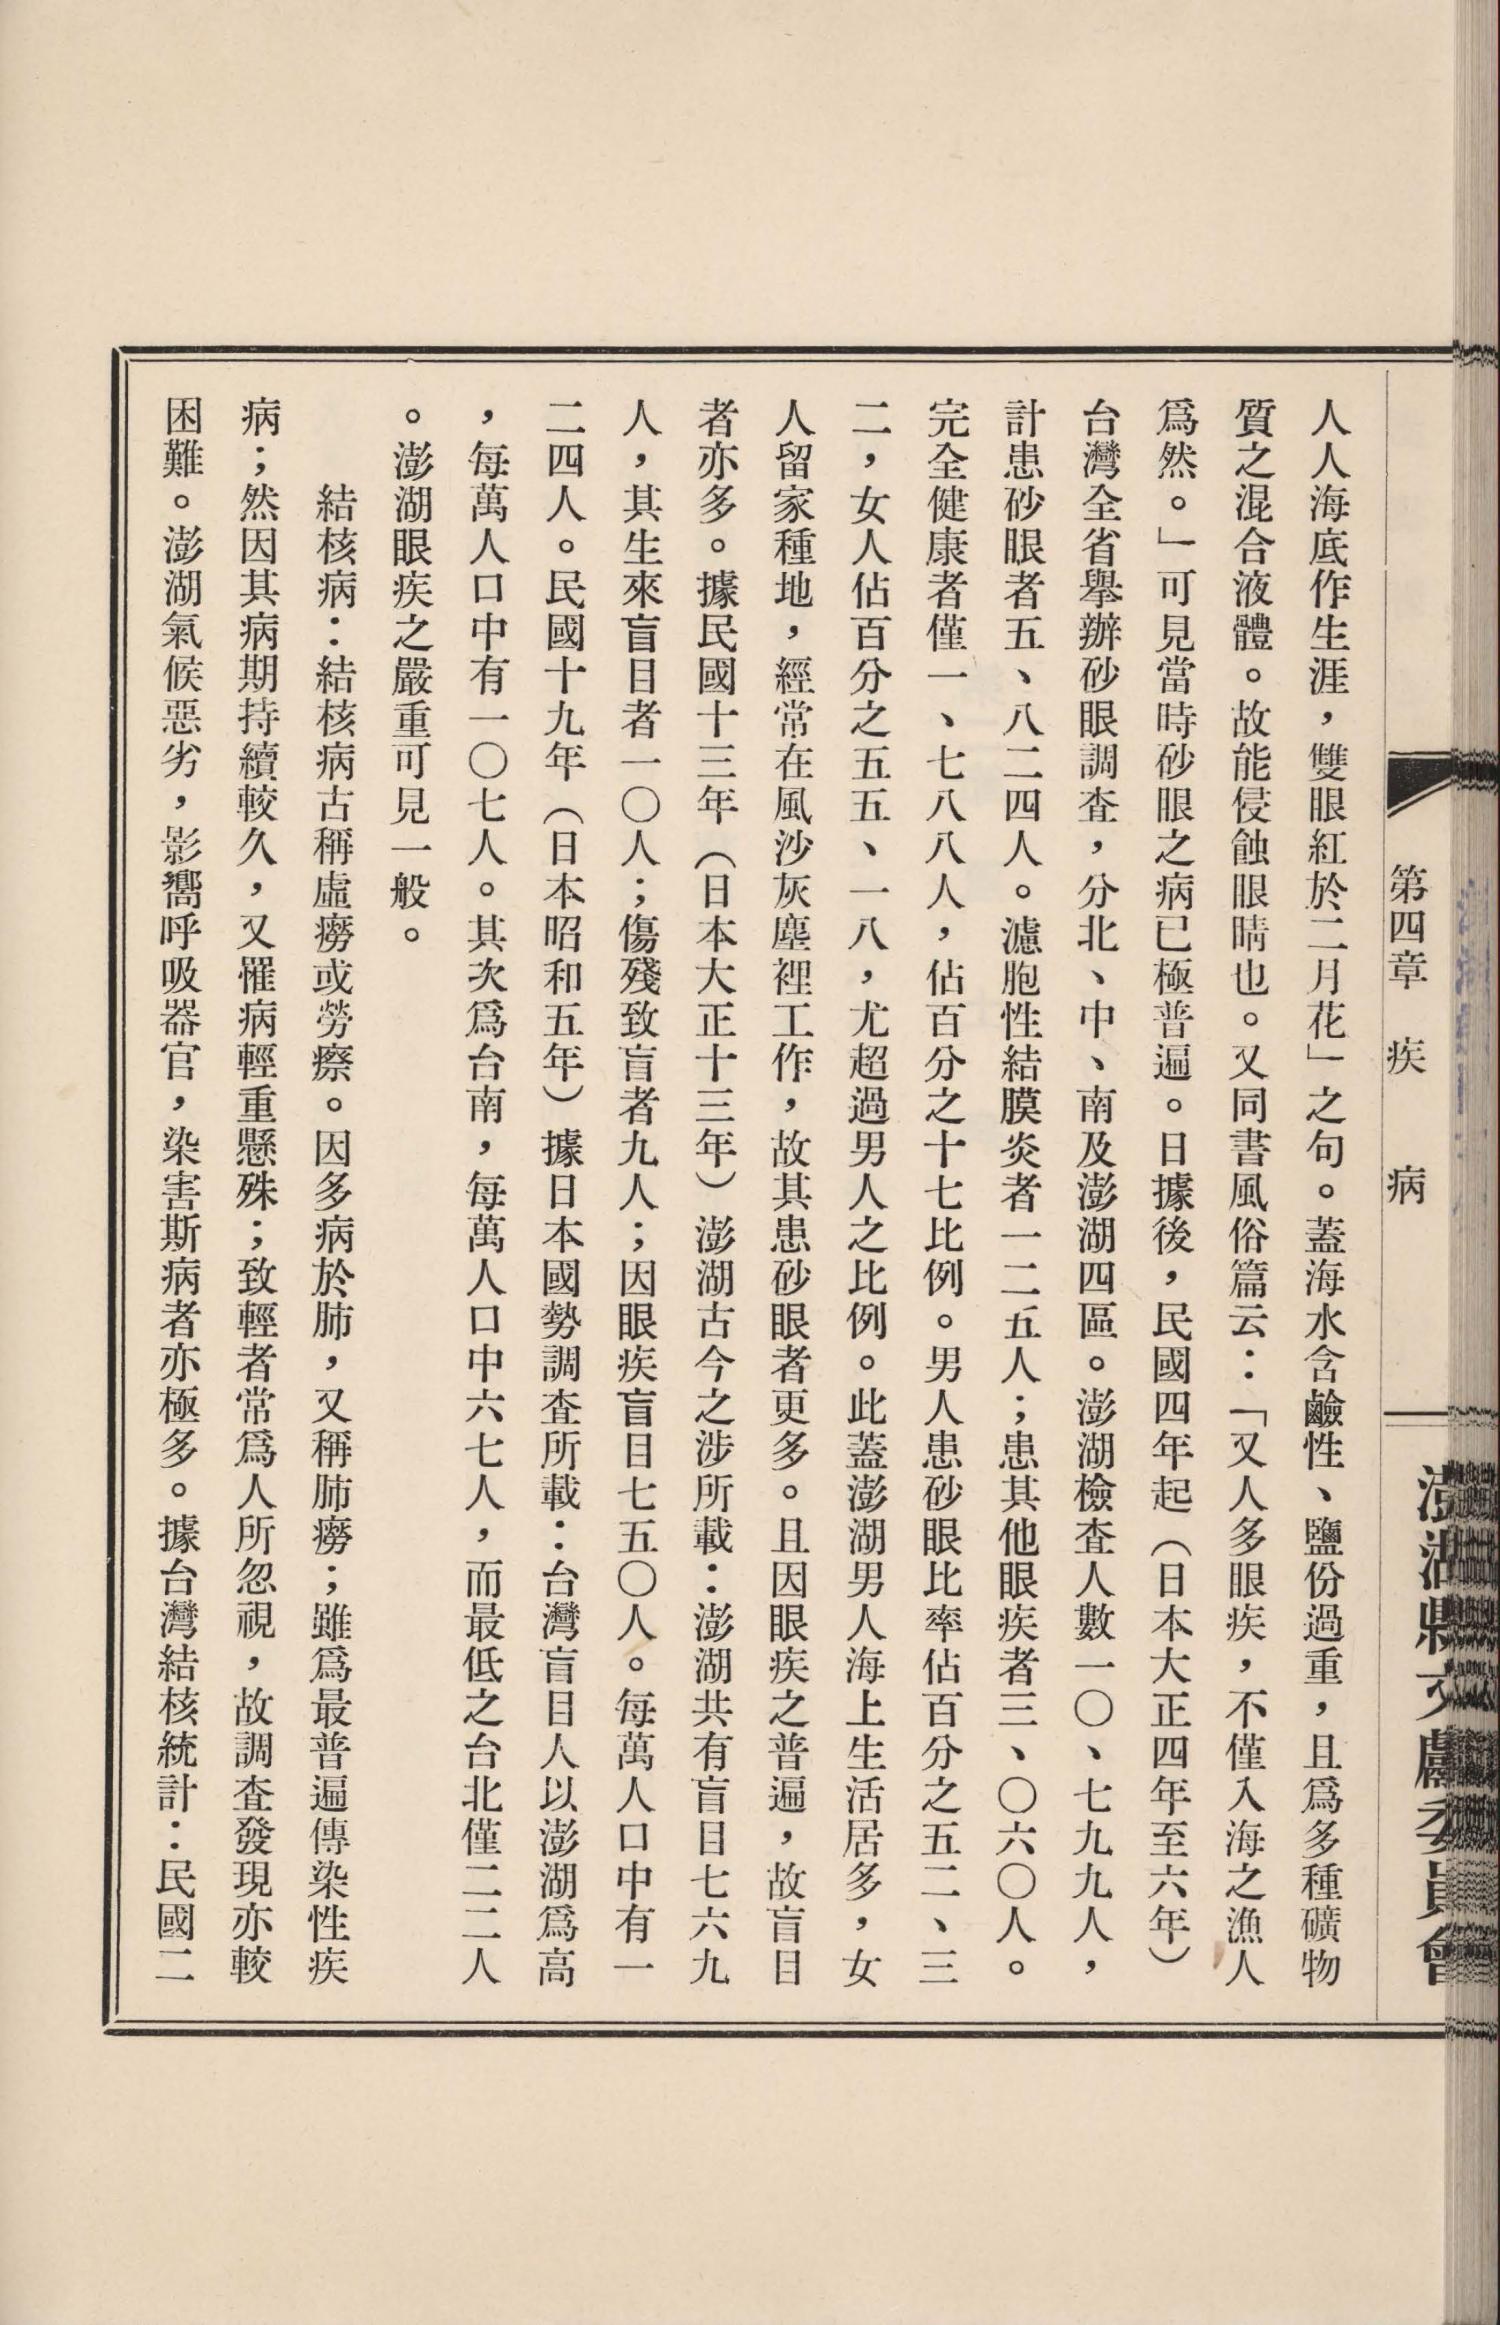 第四章　疾　病
澎湖縣文獻委員會
人人海底作生涯，雙眼紅於二月花」之句。蓋海水含鹼性、鹽份過重，且爲多種礦物
質之混合液體。故能侵蝕眼睛也。又同書風俗篇云：「又人多眼疾，不僅入海之漁人
爲然。」可見當時砂眼之病已極普遍。日據後，民國四年起（日本大正四年至六年）
台灣全省舉辦砂眼調查，分北、中、南及澎湖四區。澎湖檢查人數一〇、七九九人，
計患砂眼者五、八二四人。濾胞性結膜炎者一二五人；患其他眼疾者三、〇六〇人。
完全健康者僅一、七八八人，佔百分之十七比例。男人患砂眼比率佔百分之五二、三
二，女人佔百分之五五、一八，尤超過男人之比例。此蓋澎湖男人海上生活居多，女
人留家種地，經常在風沙灰塵裡工作，故其患砂眼者更多。且因眼疾之普遍，故盲目
者亦多。據民國十三年（日本大正十三年）澎湖古今之涉所載：澎湖共有盲目七六九
人，其生來盲目者一〇人；傷殘致盲者九人；因眼疾盲目七五〇人。每萬人口中有一
二四人。民國十九年（日本昭和五年）據日本國勢調查所載：台灣盲目人以澎湖爲高
，每萬人口中有一〇七人。其次爲台南，每萬人口中六七人，而最低之台北僅二二人
。澎湖眼疾之嚴重可見一般。
結核病：結核病古稱虛癆或勞瘵。因多病於肺，又稱肺癆；雖爲最普遍傳染性疾
病；然因其病期持續較久，又罹病輕重懸殊；致輕者常爲人所忽視，故調查發現亦較
困難。澎湖氣候惡劣，影嚮呼吸器官，染害斯病者亦極多。據台灣結核統計：民國二